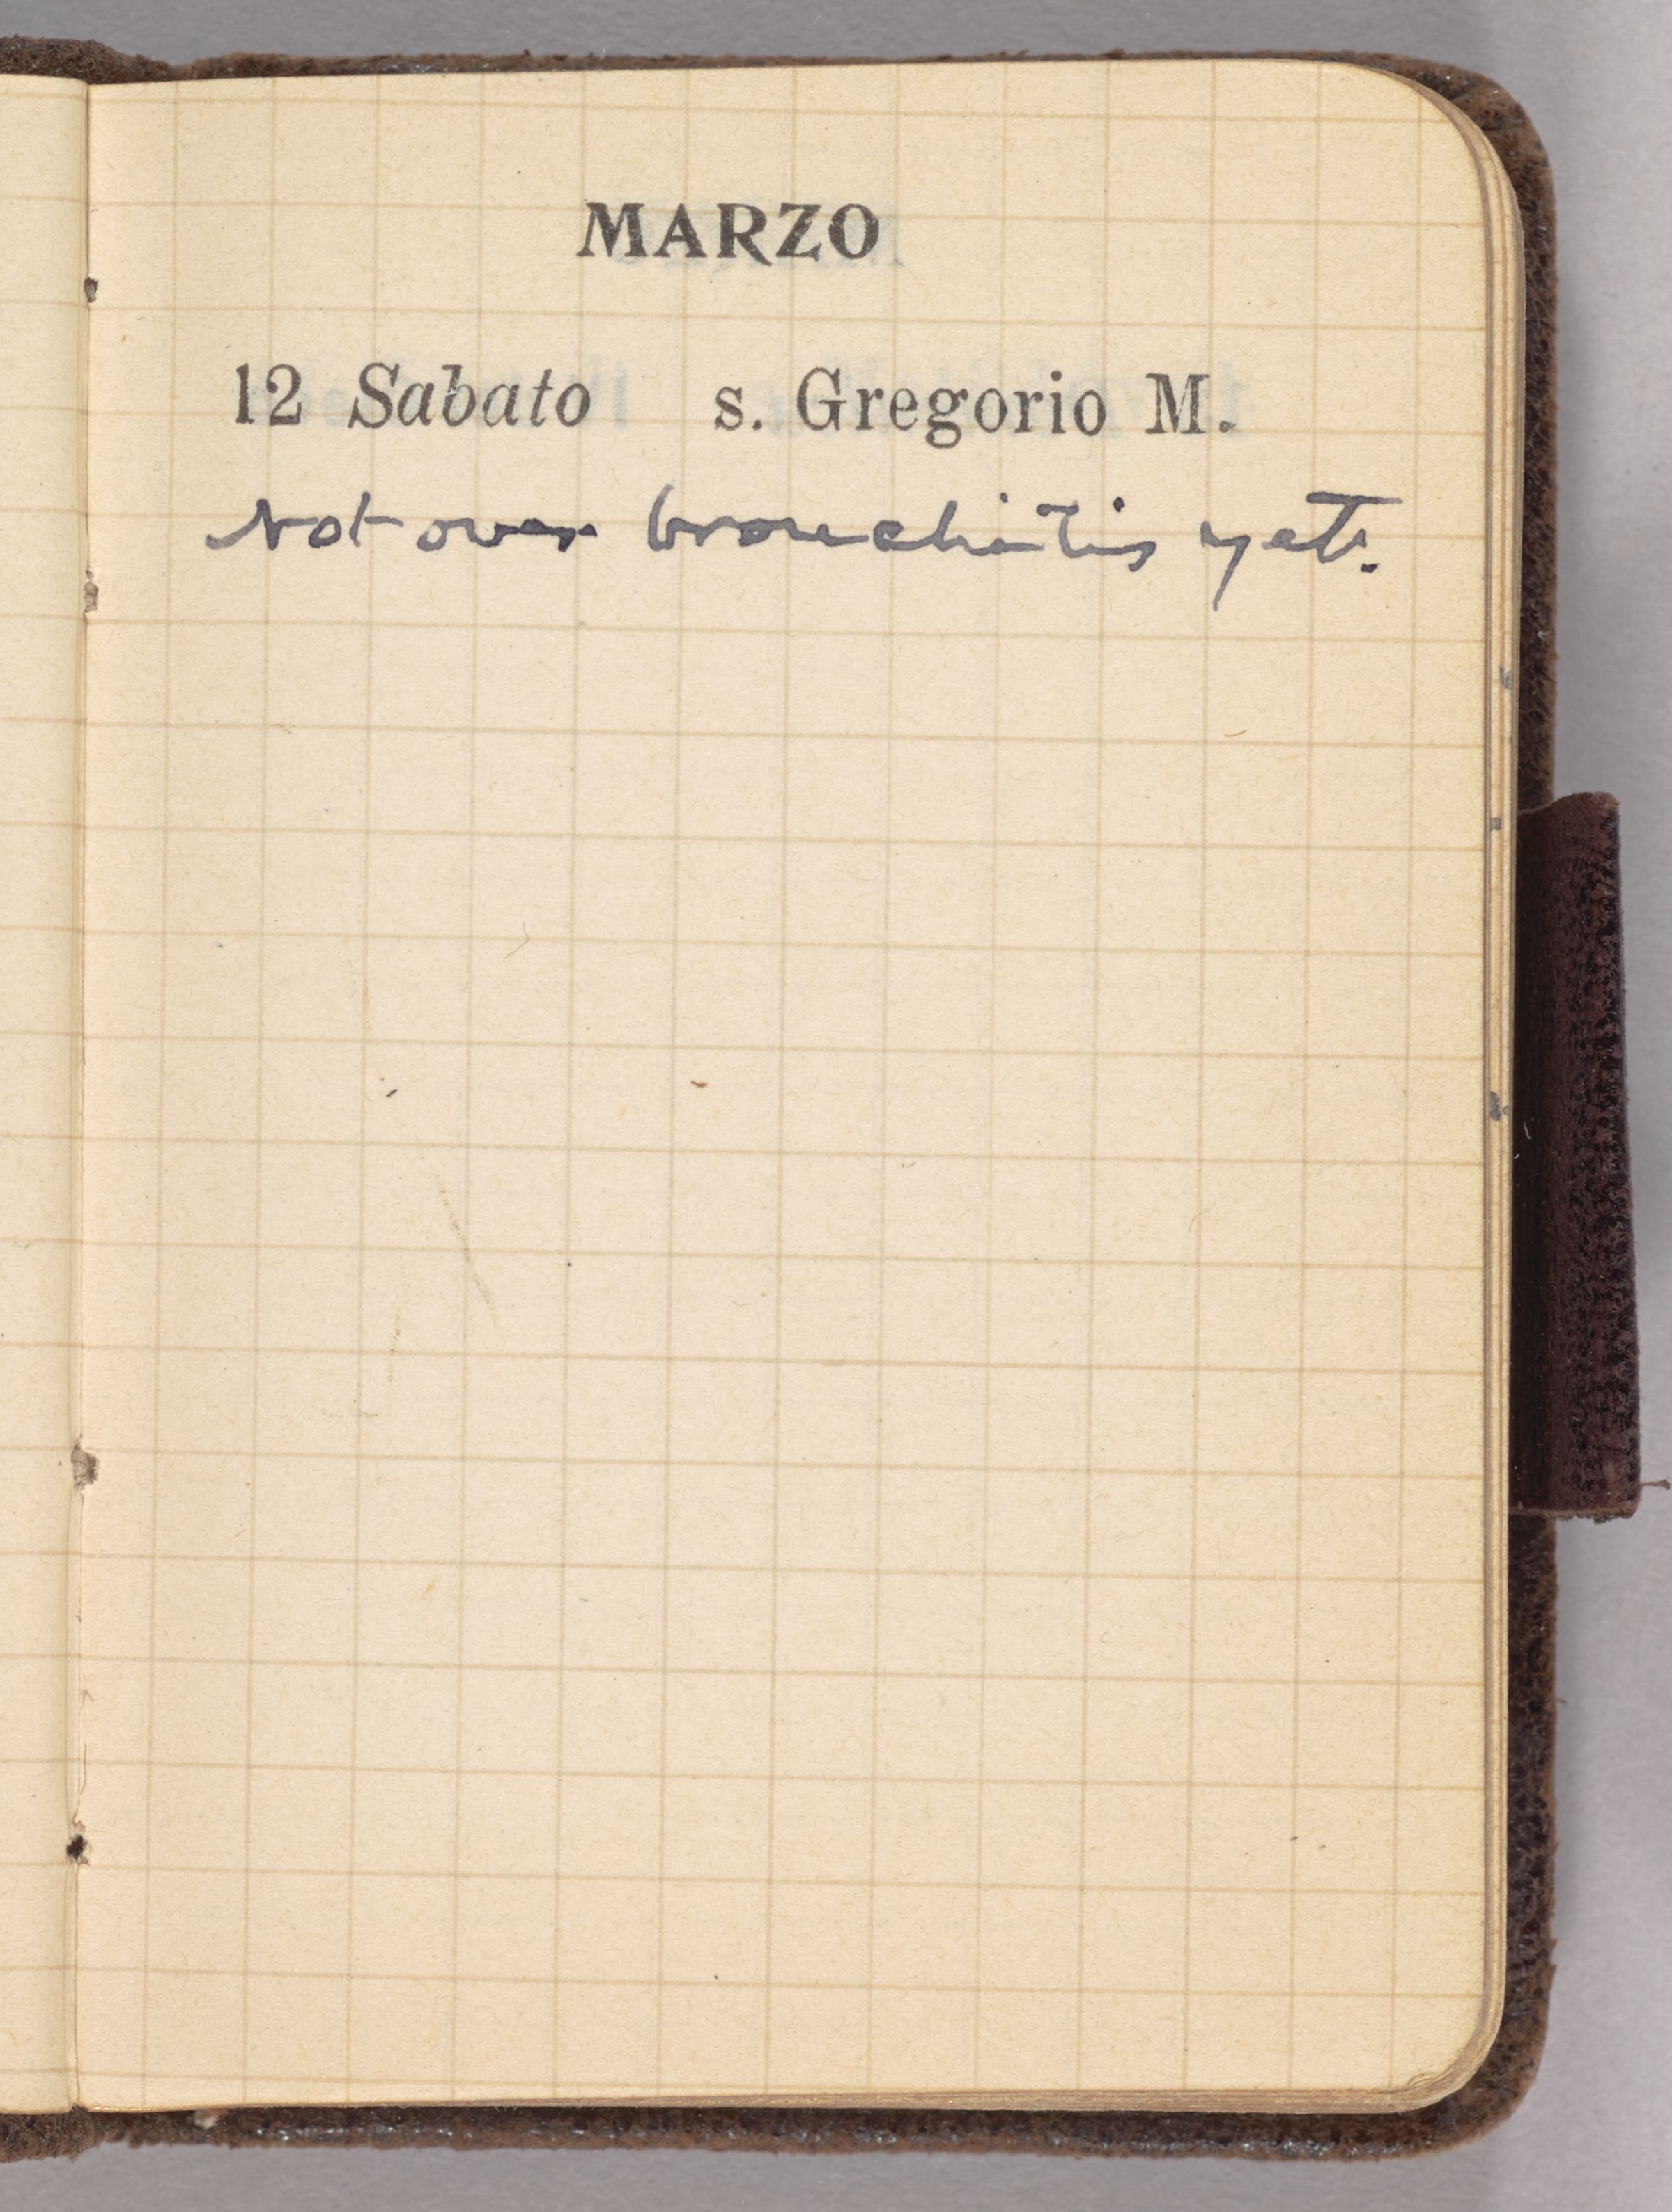 MARZO
12 Sabato s. Gregorio M.
Not over bronchitis yet.